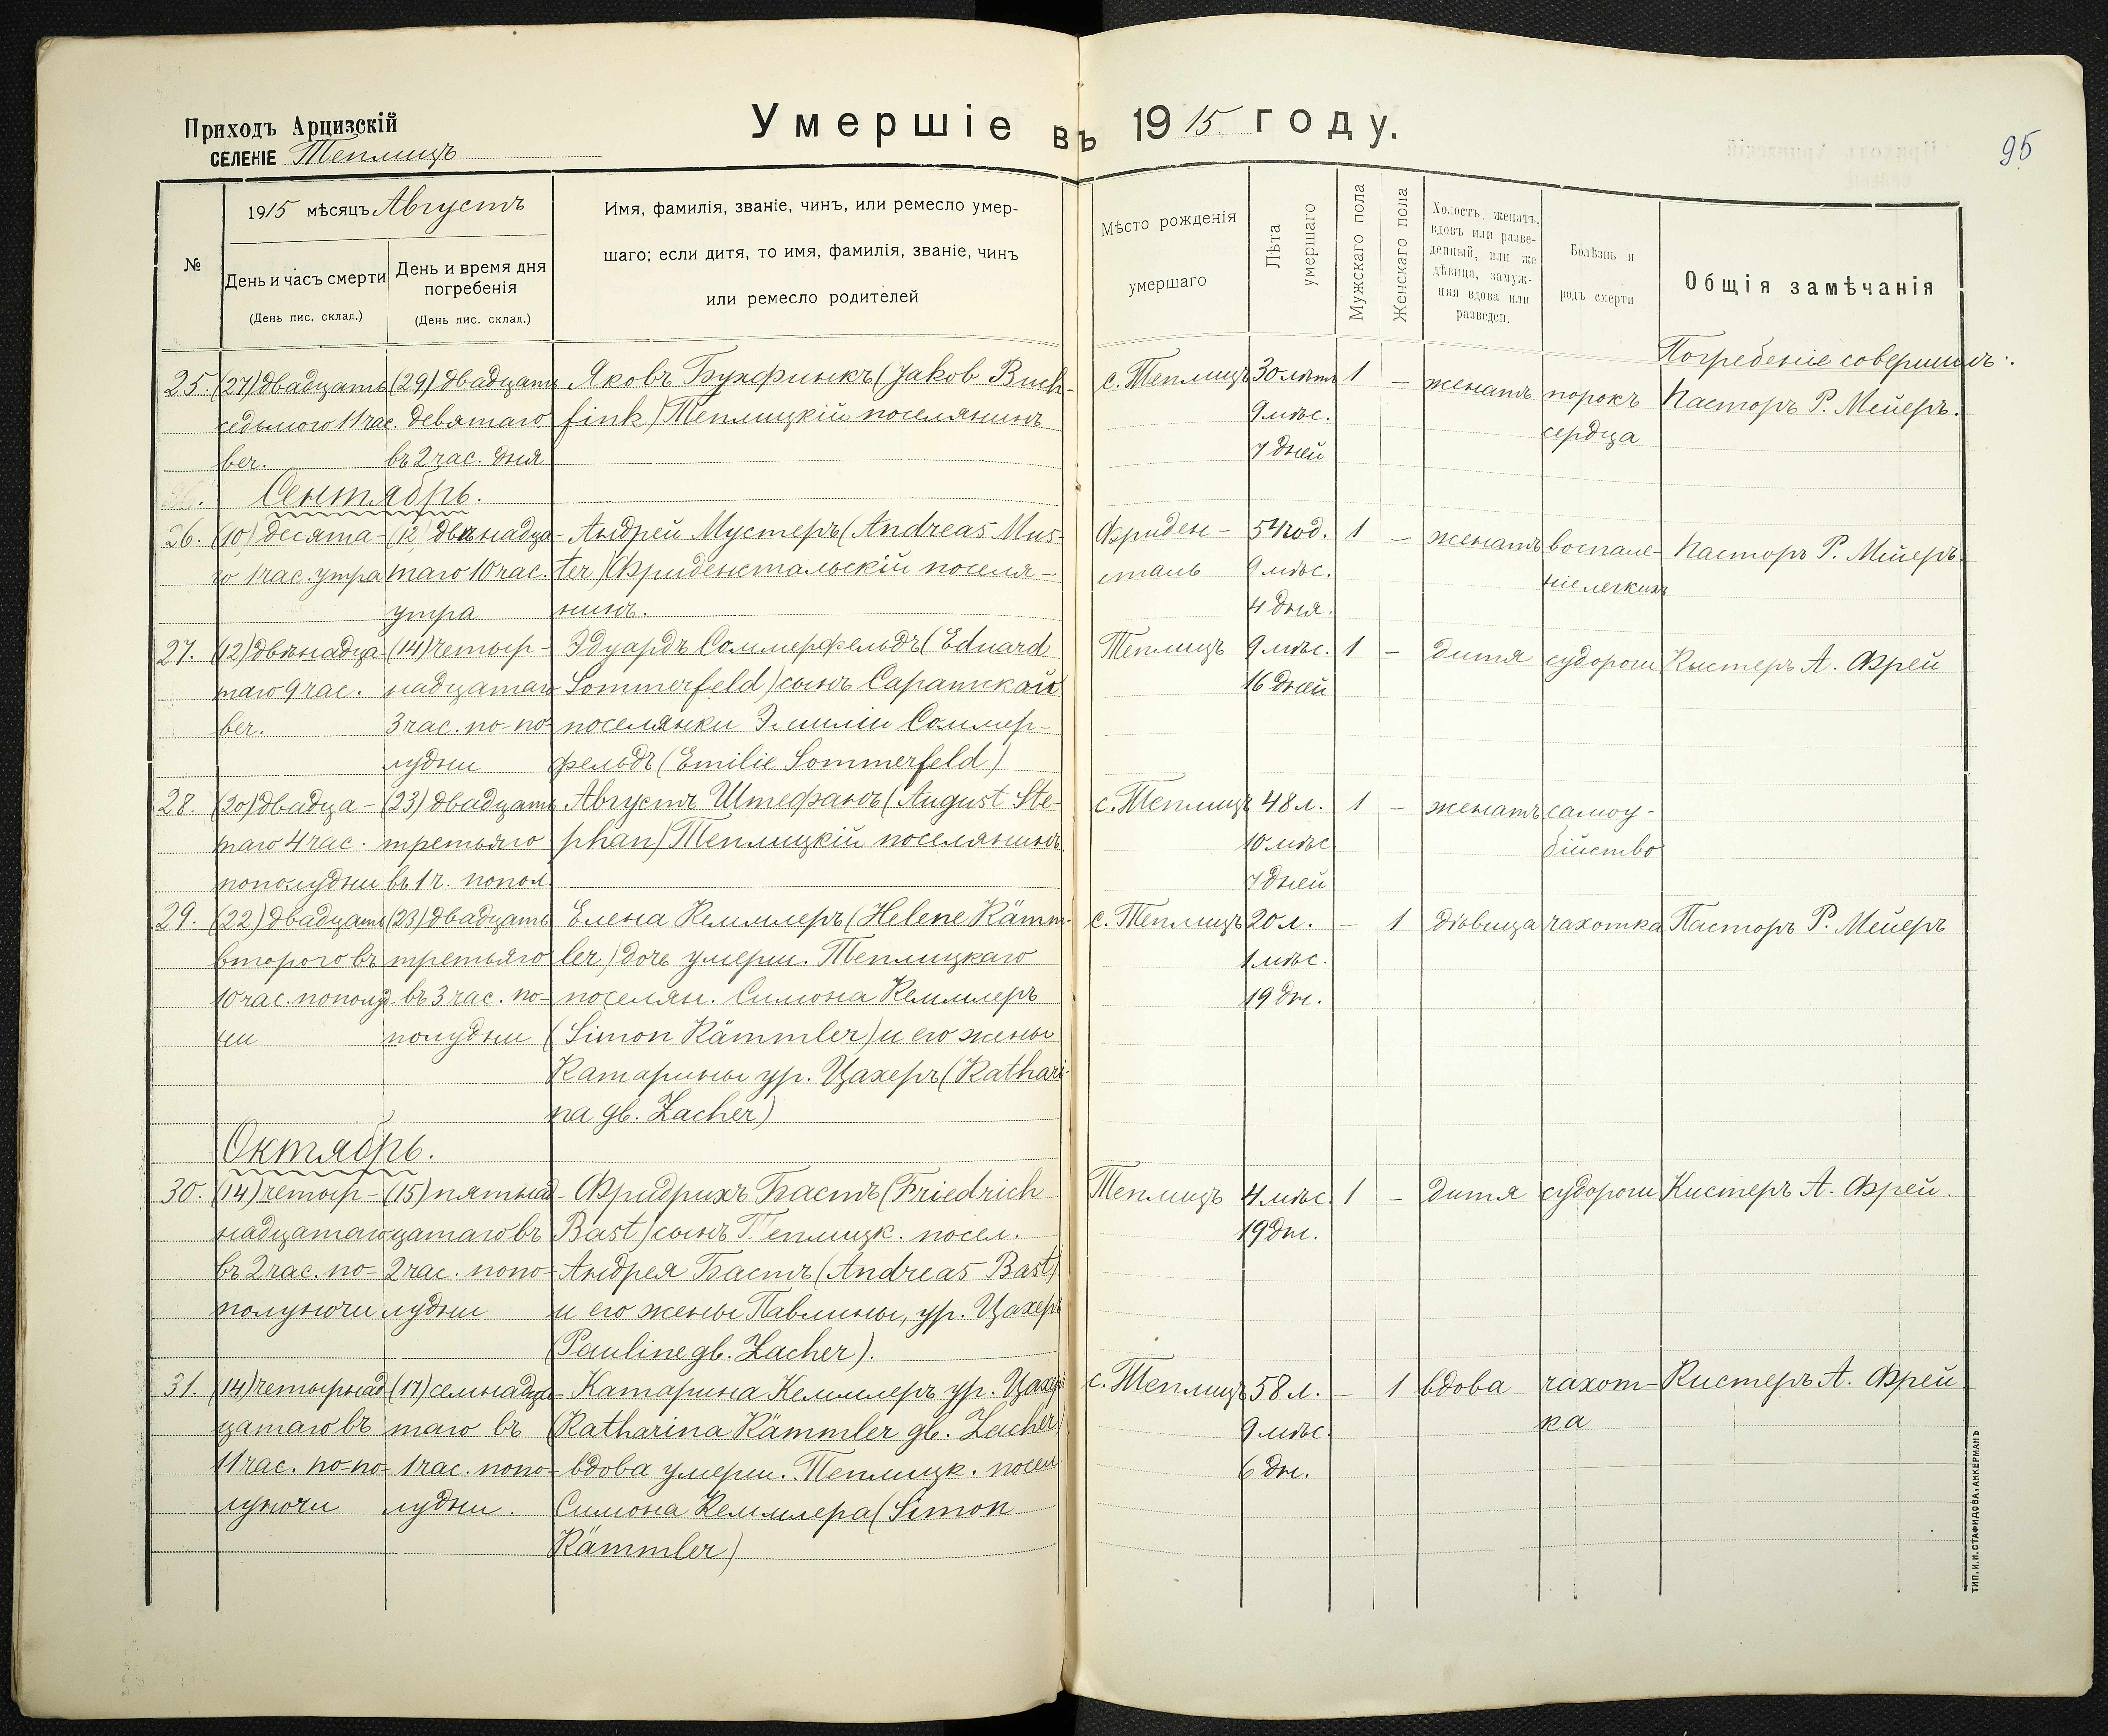 Приходъ Арцизскій
СЕЛЕНІЕ Теплицъ
Умершіе въ 1915 году.
95
№
1915 мѣсяцъ Августъ
День и часъ смерти
(День пис. склад.)
День и время дня погребенія
(День пис. склад.)
Имя, фамилія, званіе, чинъ, или ремесло умер-
шаго; если дитя, то имя, фамилія, званіе, чинъ
или ремесло родителей
Мѣсто рожденія
умершаго
Лѣта
умершаго
Мужскаго пола
Женскаго пола
Холостъ, женатъ,
вдовъ или разве-
денный, или же
дѣвица, замуж-
няя вдова или
разведен.
Болѣзнь и
родъ смерти
Общія замѣчанія
Погребеніе совершилъ:
25. (27) двадцать (29) двадцать Яковъ Бухфинкъ (Jakob Buch- с. Теплицъ 30 лѣтъ 1 – женатъ порокъ Пасторъ Р. Мейеръ.
седьмого 11 час. девятаго fink) Теплицкій поселянинъ 9 мѣс. сердца
веч. въ 2 час. дня 7 дней
Сентябрь.
26. (10) десята- (12) двѣнадца- Андрей Мустеръ (Andreas Mus- Фриден- 54 год. 1 – женатъ воспале- Пасторъ Р. Мейеръ
го 1 час. утра таго 10 час. ter) Фриденстальскій поселя- сталь 9 мѣс. ніе легкихъ
утра нинъ. 4 дня.
27. (12) двѣнадца- (14) четыр- Эдуардъ Соммерфельдъ (Eduard Теплицъ 9 мѣс. 1 – дитя судороги Кистеръ А. Фрей
таго 9 час. надцатаго Sommerfeld) сынъ Саратской 16 дней
веч. 3 час. по-по- поселянки Эмиліи Соммер-
лудни фельдъ (Emilie Sommerfeld)
28. (20) двадца- (23) двадцать Августъ Штефанъ (August Ste- с. Теплицъ 48 л. 1 – женатъ самоу-
таго 4 час. третьяго phan) Теплицкій поселянинъ 10 мѣс. бійство
пополудни въ 1 ч. попол. 7 дней
29. (22) двадцать (23) двадцать Елена Кеммлеръ (Helene Kämm- с. Теплицъ 20 л. – 1 дѣвица чахотка Пасторъ Р. Мейеръ
второго въ третьяго ler) дочь умерш. Теплицкаго 1 мѣс.
10 час. пополуд- въ 3 час. по- поселян. Симона Кеммлеръ 19 дн.
ни полудни (Simon Kämmler) и его жены
Катарины ур. Цахеръ (Kathari-
na gb. Zacher)
Октябрь.
30. (14) четыр- (15) пятнад- Фридрихъ Бастъ (Friedrich Теплицъ 4 мѣс. 1 – дитя судороги Кистеръ А. Фрей.
надцатаго цатаго въ Bast) сынъ Теплицк. посел. 19 дн.
въ 2 час. по- 2 час. попо- Андрея Бастъ (Andreas Bast)
полуночи лудни и его жены Павлины, ур. Цахеръ
(Pauline gb. Zacher).
31. (14) четырнад (17) семнадца- Катарина Кеммлеръ ур. Цахеръ с. Теплицъ 58 л. – 1 вдова чахот- Кистеръ А. Фрей
цатаго въ таго въ (Katharina Kämmler gb. Zacher) 9 мѣс. ка
11 час. по-по- 1 час. попо- вдова умерш. Теплицк. посел 6 дн.
луночи лудни. Симона Кеммлера (Simon
Kämmler)
ТИП. И. Н. СТАФИДОВА, АККЕРМАНЪ